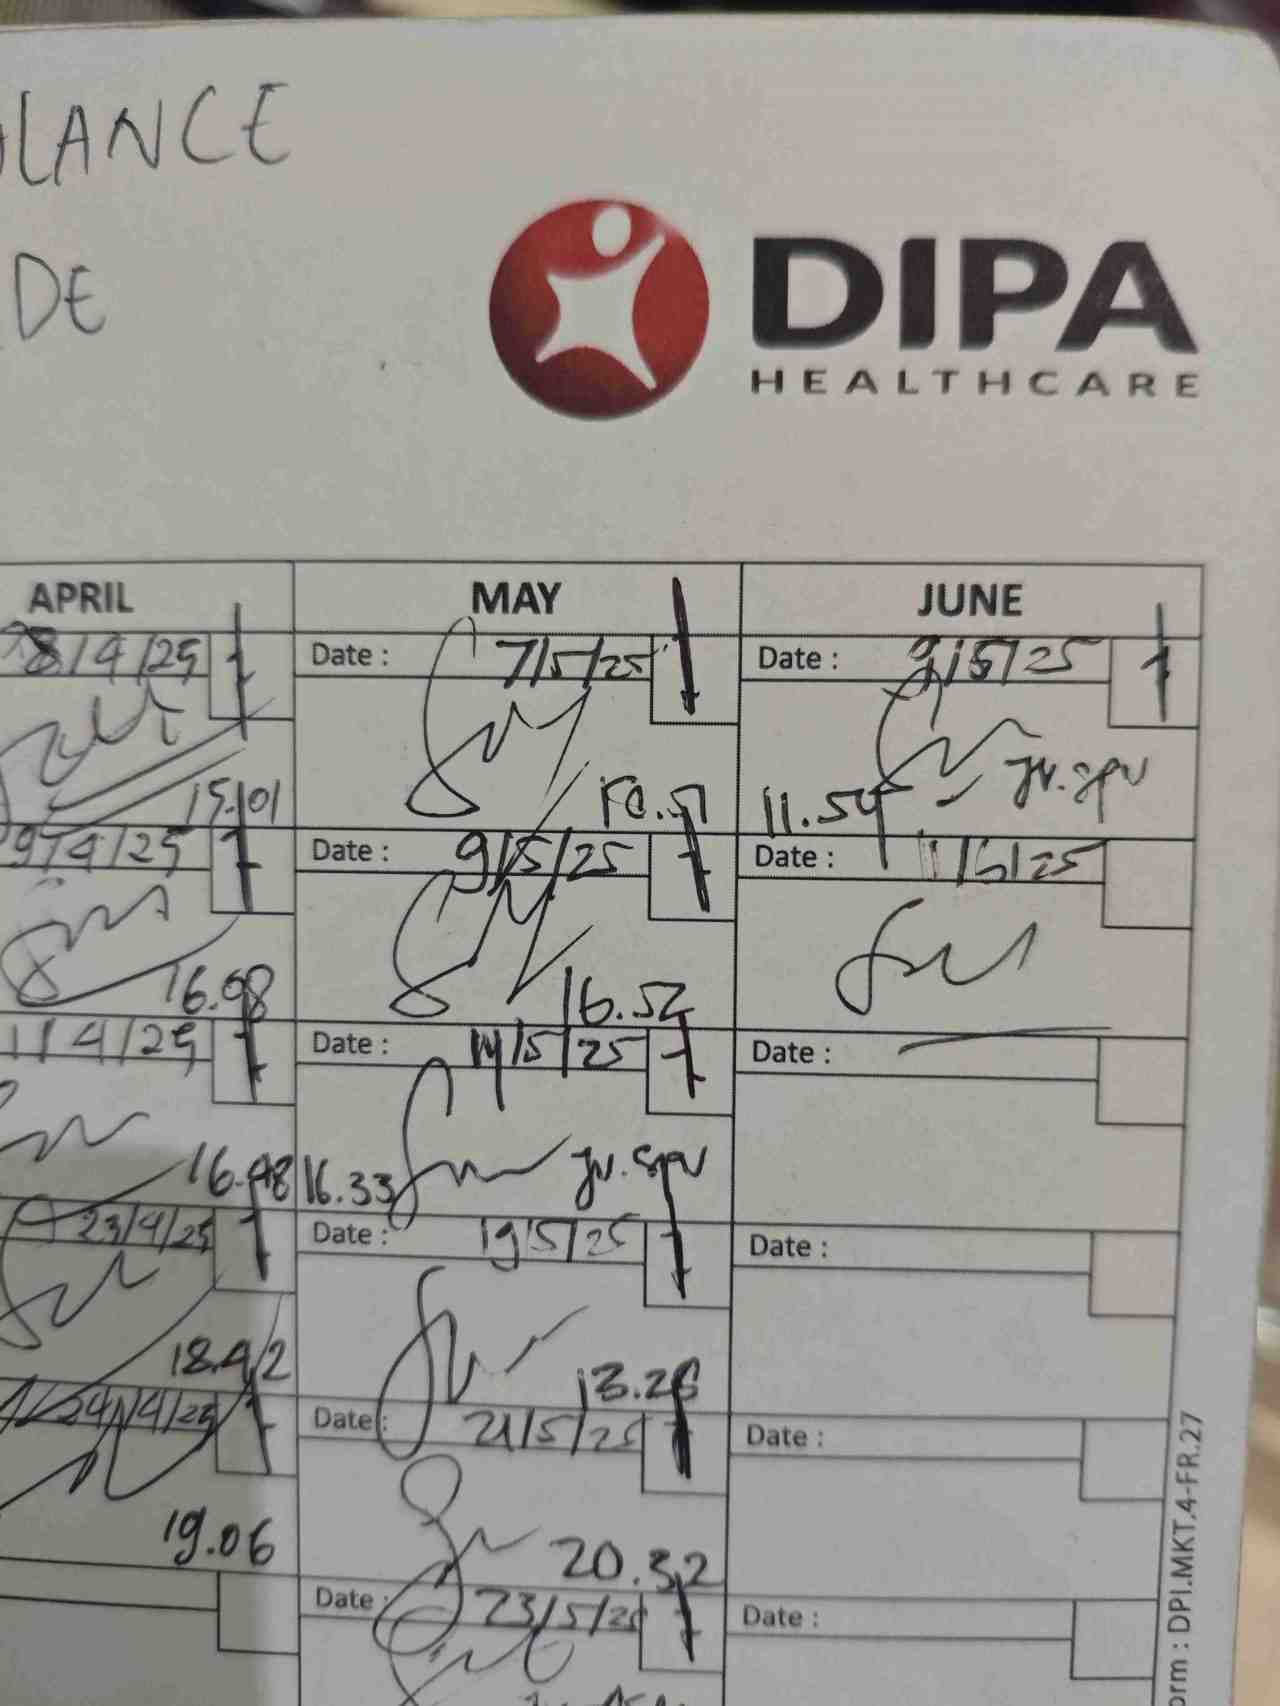 LANCE
DE
DIPA
HEALTHCARE
APRIL MAY JUNE
8/4/25 Date : 7/5/25 Date : 9/6/25
15.01 11.54 Jv. Spv
9/4/25 Date : 9/5/25 Date : 11/6/25
16.08 16.52
11/4/25 Date : 14/5/25 Date :
16.48 16.33 Jv. Spv
23/4/25 Date : 19/5/25 Date :
18.42 13.26
24/4/25 Date : 21/5/25 Date :
19.06 20.32
Date : 23/5/25 Date :
orm : DPI.MKT.4-FR.27